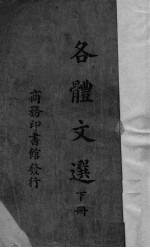 各體文選
下冊
商務印書館發行